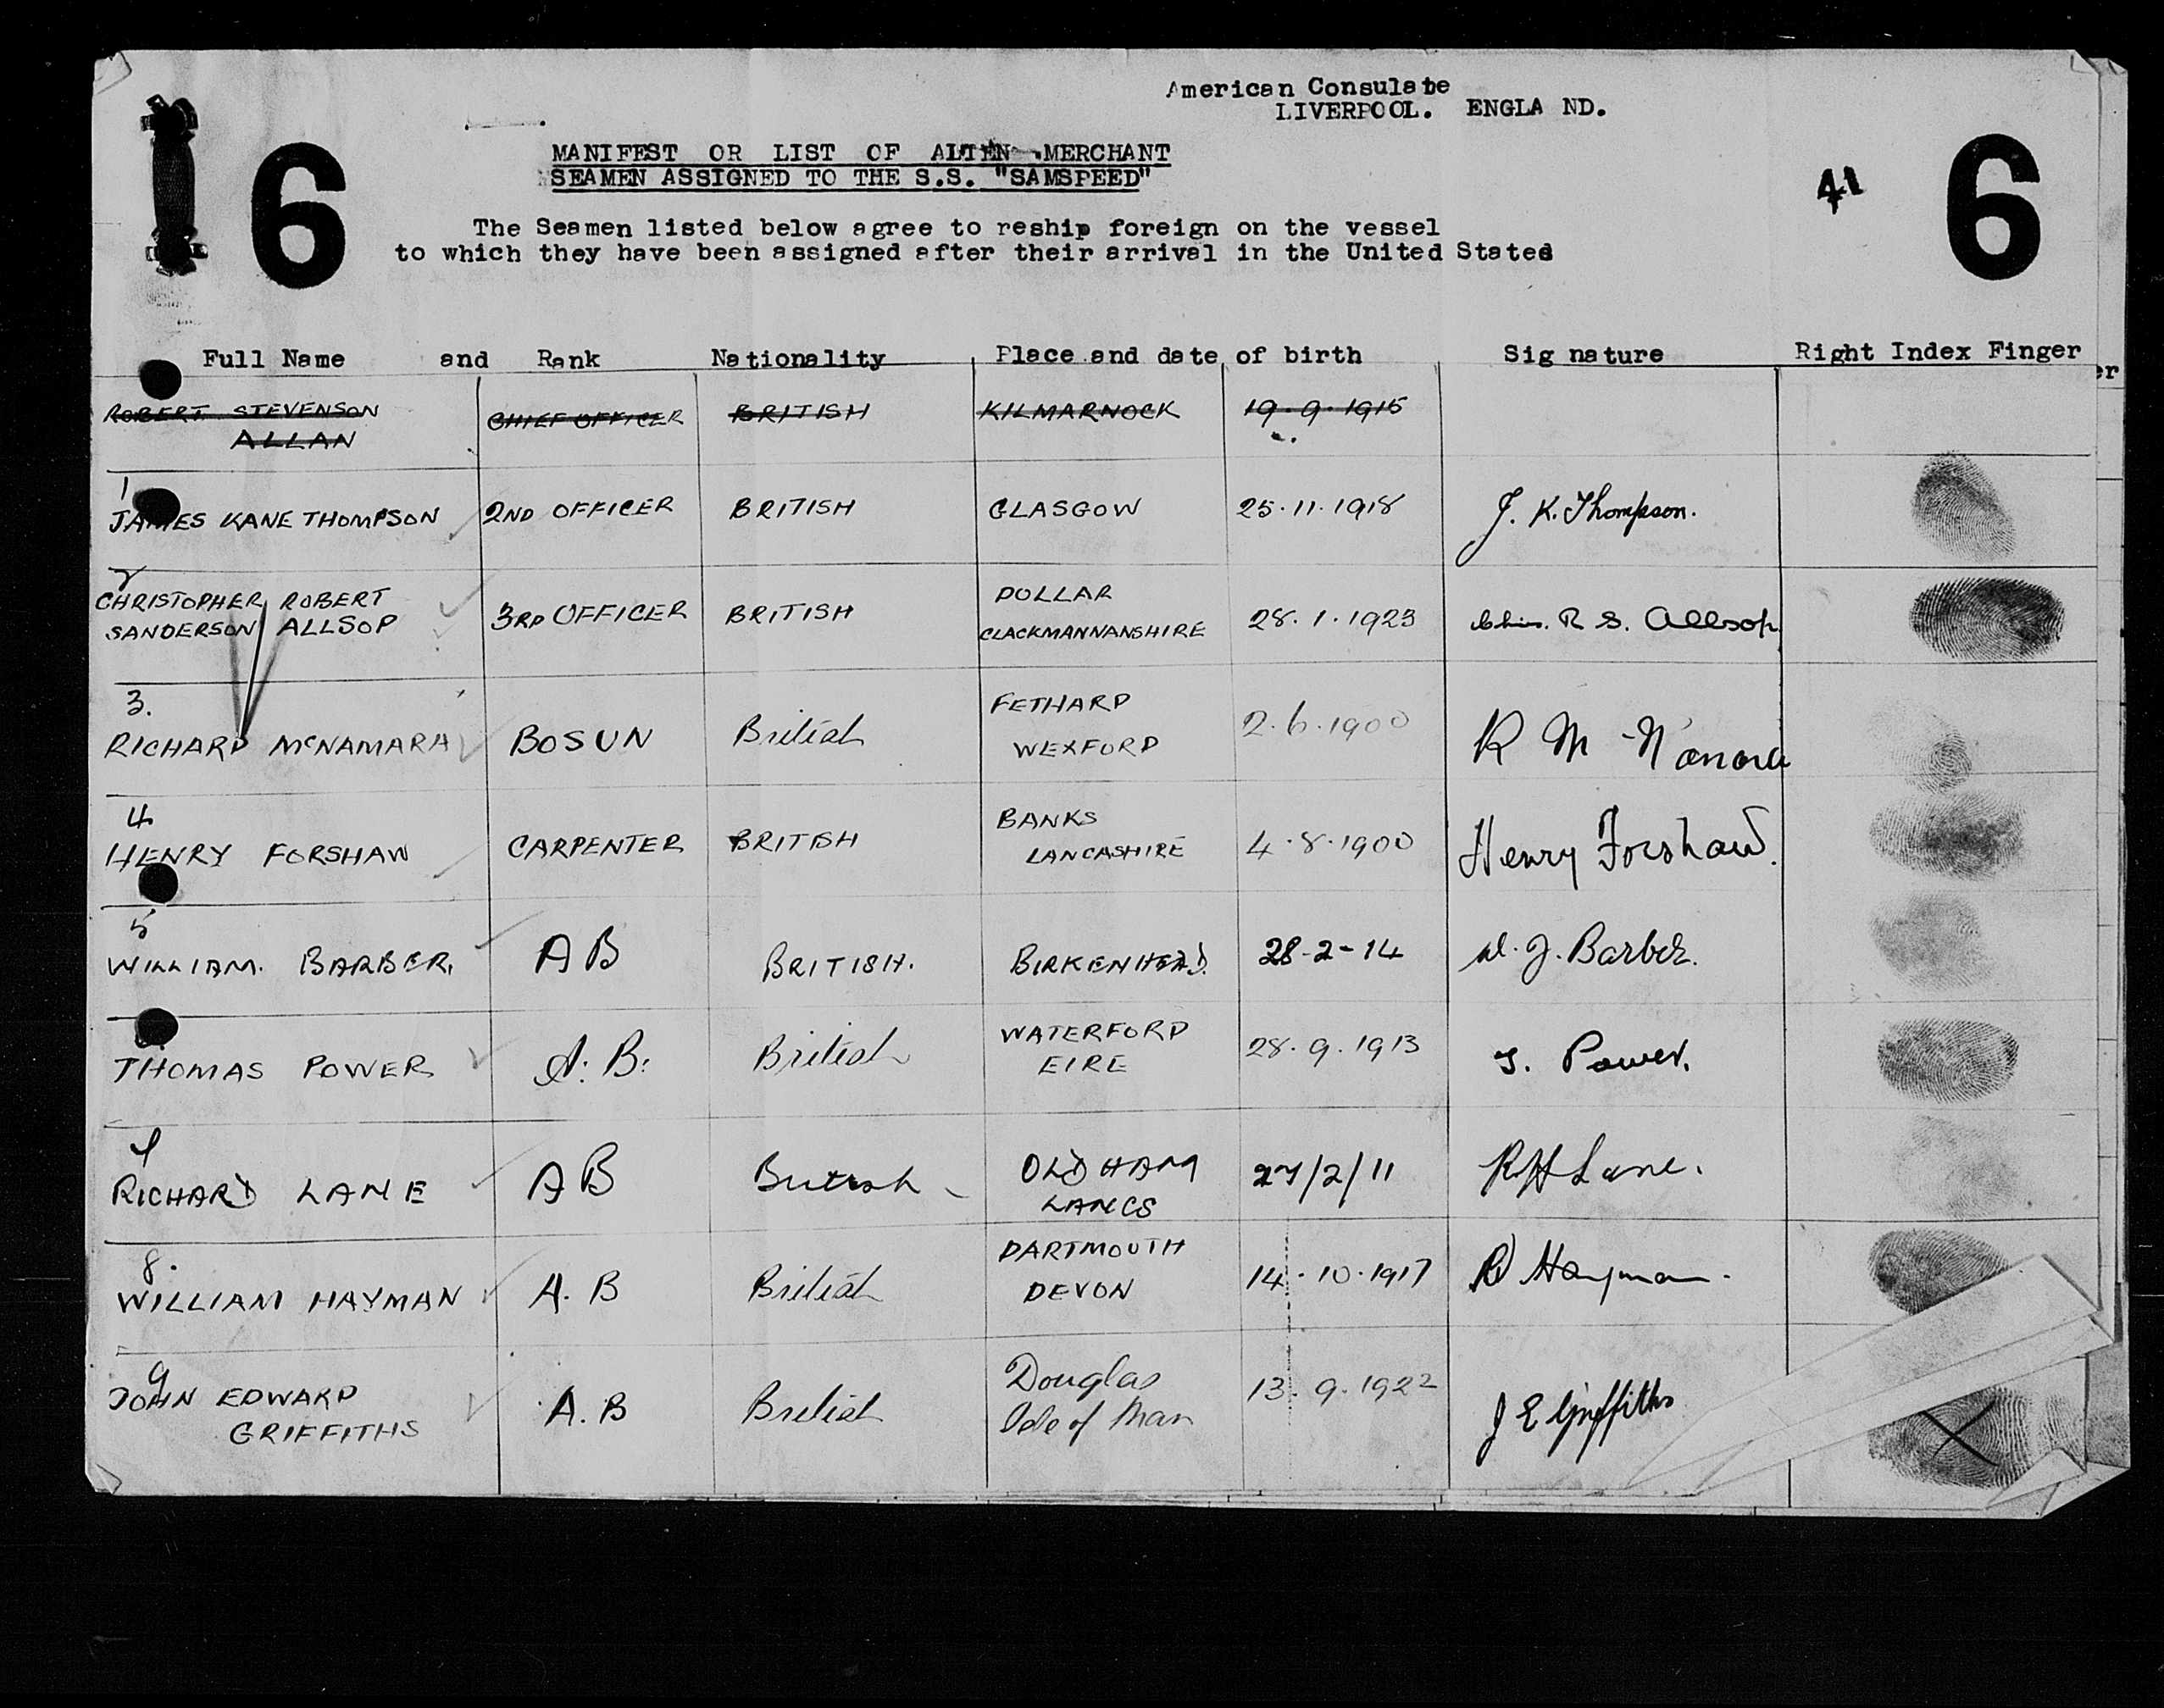 American Consulate
LIVERPOOL. ENGLA ND.
6
6
41
MANIFEST OR LIST OF ALIEN MERCHANT
SEAMEN ASSIGNED TO THE S.S. "SAMSPEED"
The Seamen listed below agree to reship foreign on the vessel
to which they have been assigned after their arrival in the United States
Full Name and Rank Nationality Place and date of birth Sig nature Right Index Finger
er
ROBERT STEVENSON CHIEF OFFICER BRITISH KILMARNOCK 19.9.1915
ALLAN
1
JAMES KANE THOMPSON 2ND OFFICER BRITISH GLASGOW 25.11.1918 J. K. Thompson.
2
CHRISTOPHER ROBERT 3RD OFFICER BRITISH DOLLAR 28.1.1923 Chris. R S. Allsop
SANDERSON ALLSOP CLACKMANNANSHIRE
3.
RICHARD McNAMARA BOSUN British FETHARD 2.6.1900 R M
WEXFORD
4
HENRY FORSHAW CARPENTER BRITISH BANKS 4.8.1900 Henry Forshaw.
LANCASHIRE
5
WILLIAM. BARBER. AB BRITISH. BIRKENHEAD. 28-2-14 W. J. Barber.
THOMAS POWER A.B. British WATERFORD 28.9.1913 T. Power.
EIRE
RICHARD LANE AB British OLDHAM 27/2/11 RH Lane.
LANCS
8.
WILLIAM HAYMAN A.B British DARTMOUTH 14.10.1917 Hayman.
DEVON
9
JOHN EDWARD A.B British Douglas 13.9.1922 J E Griffiths
GRIFFITHS Isle of Man